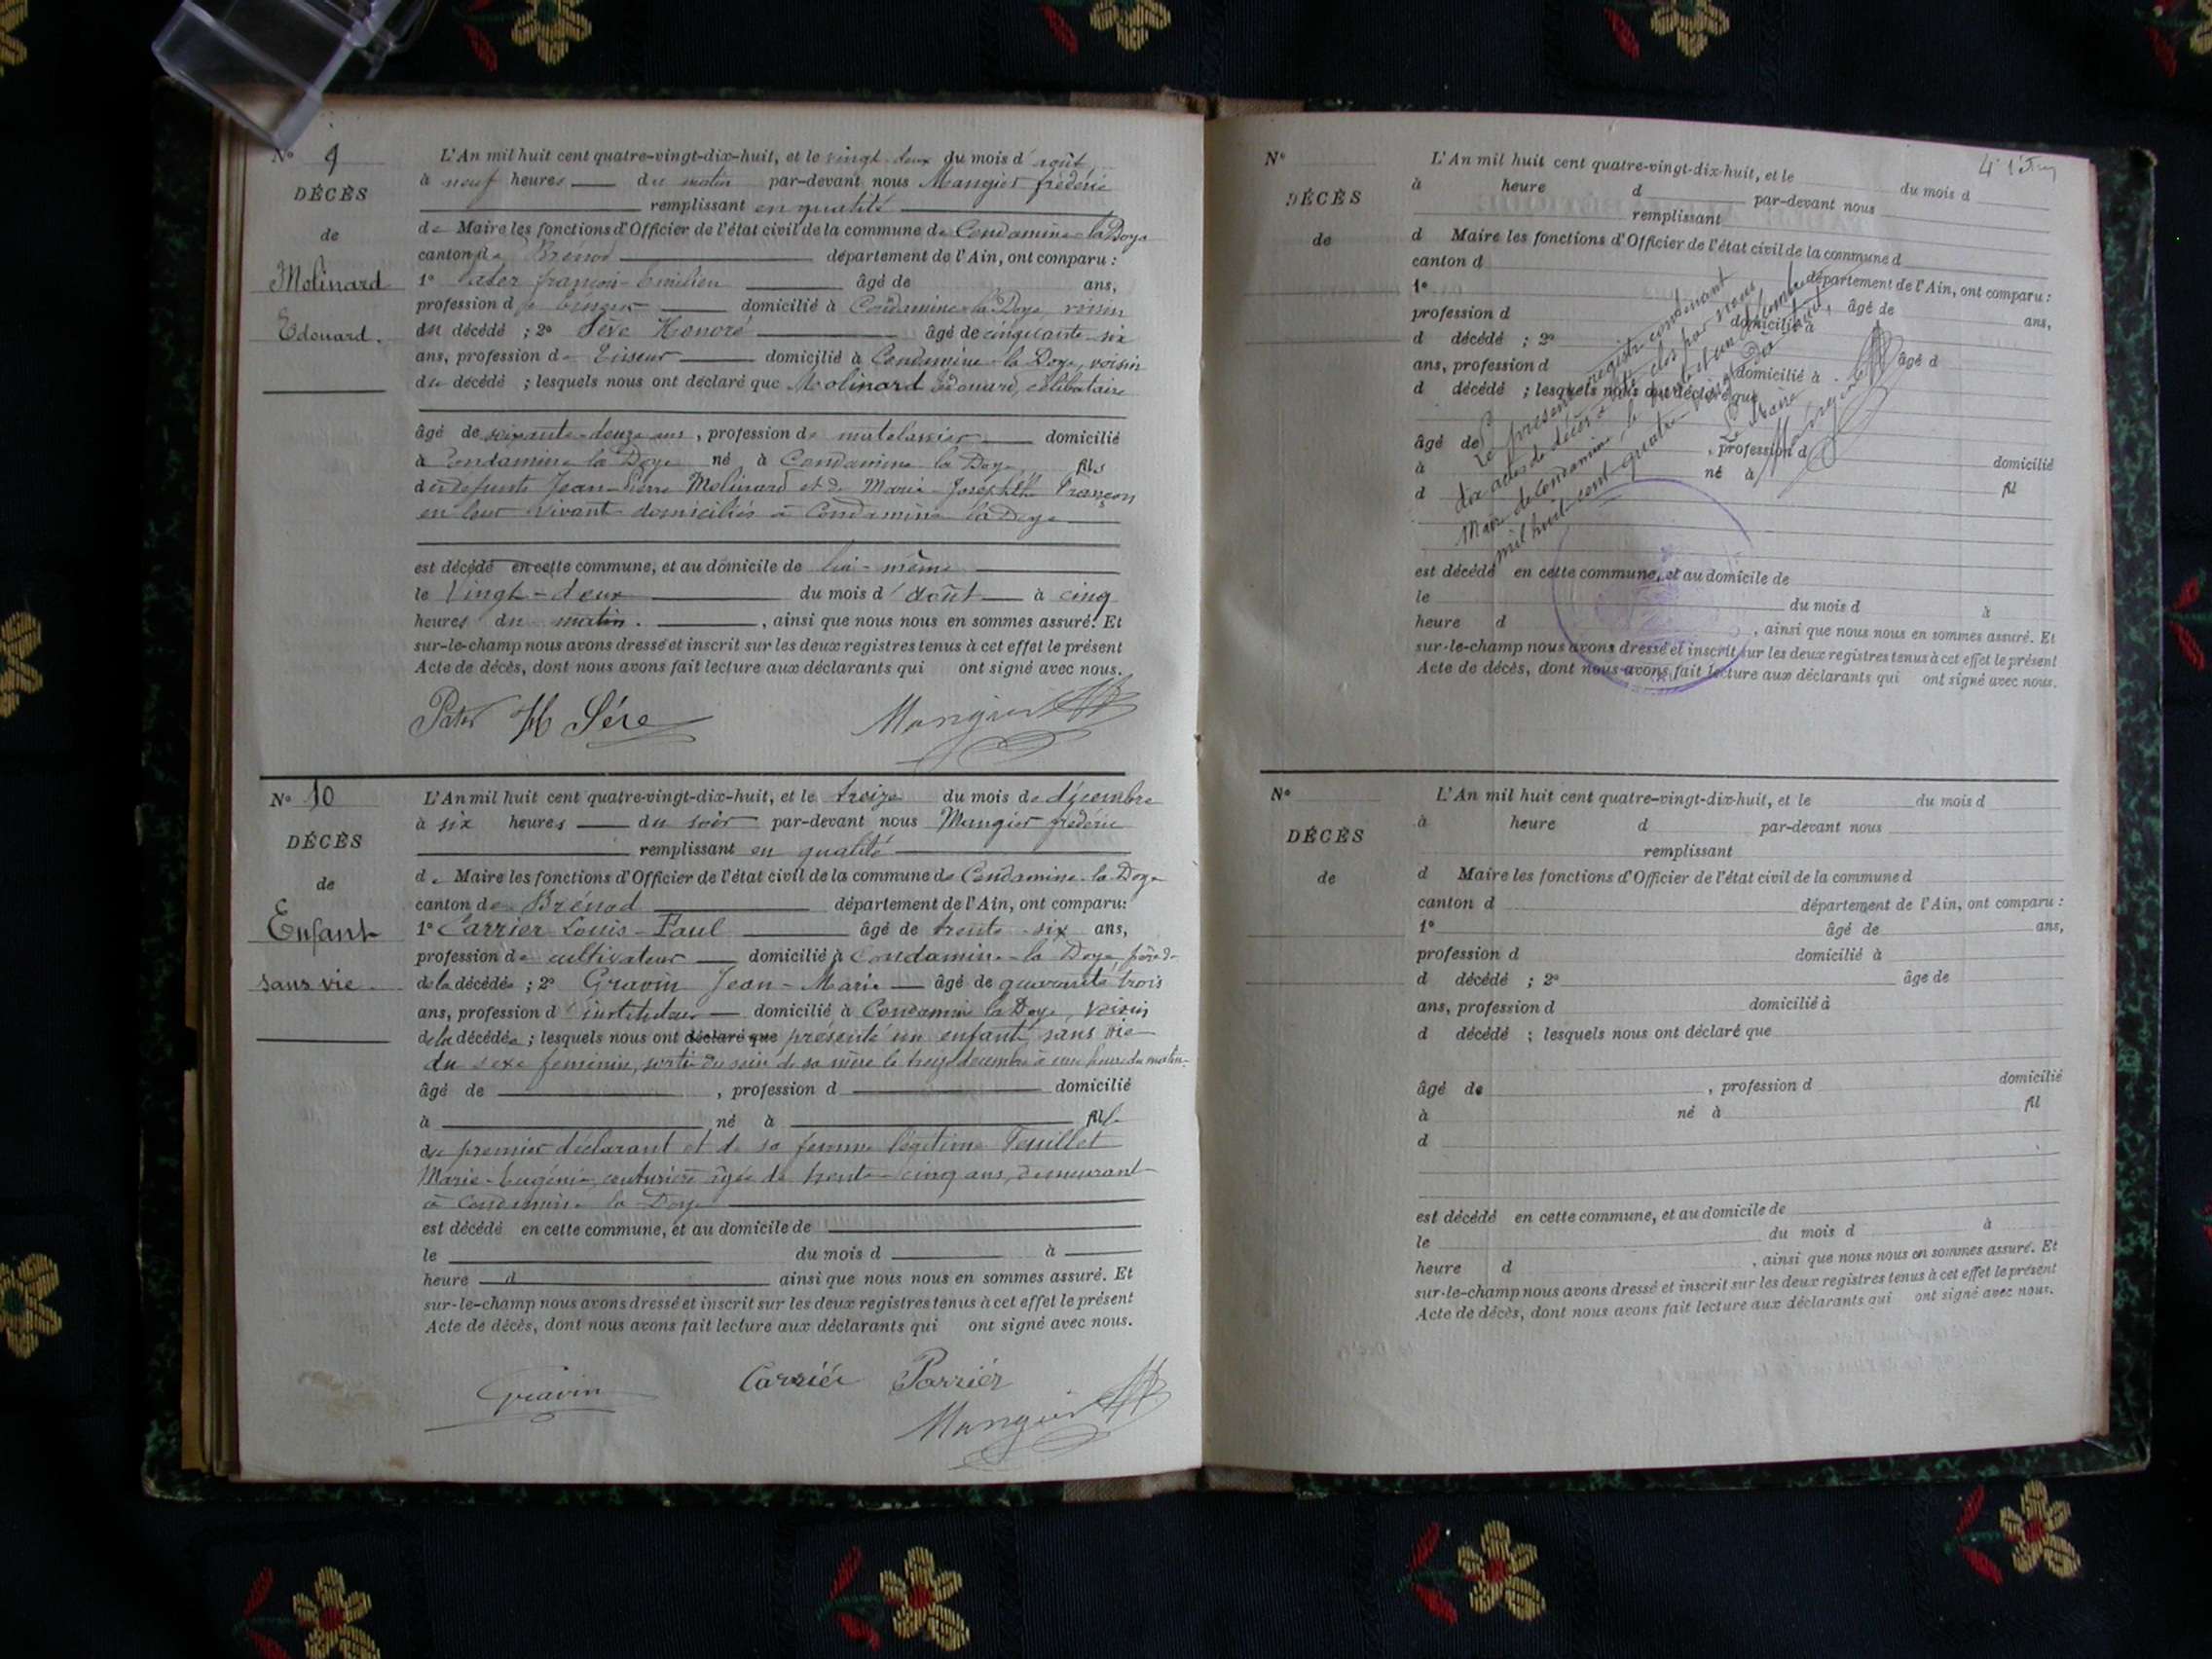 N° 9
DÉCÈS
de
Molinard
Edouard.
L'An mil huit cent quatre-vingt-dix-huit, et le vingt-deux du mois d'août
à neuf heures du matin par-devant nous Mangier frédéric
remplissant en qualité
de Maire les fonctions d'Officier de l'état civil de la commune de Condamine la Doye
canton de Brénod département de l'Ain, ont comparu :
1° Pater françois Emilien âgé de ans,
profession d domicilié à Condamine la Doye voisin
du décédé ; 2° Sève Honoré âgé de cinquante-six
ans, profession de domicilié à Condamine la Doye, voisin
du décédé ; lesquels nous ont déclaré que Molinard Edouard, célibataire
âgé de soixante-douze ans, profession de matelassier domicilié
à Condamine la Doye né à Condamine la Doye fils
des défunts Jean-Pierre Molinard et de Marie-Josephte Françon
en leur vivant domiciliés à Condamine la Doye
est décédé en cette commune, et au domicile de lui-même
le Vingt-deux du mois d'août à cinq
heures du matin. , ainsi que nous nous en sommes assuré. Et
sur-le-champ nous avons dressé et inscrit sur les deux registres tenus à cet effet le présent
Acte de décès, dont nous avons fait lecture aux déclarants qui ont signé avec nous.
Pater H Sève Mangier
N° 10
DÉCÈS
de
Enfant
sans vie
L'An mil huit cent quatre-vingt-dix-huit, et le treize du mois de décembre
à six heures du soir par-devant nous Mangier frédéric
remplissant en qualité
de Maire les fonctions d'Officier de l'état civil de la commune de Condamine la Doye
canton de Brénod département de l'Ain, ont comparu:
1° Carrier Louis-Paul âgé de trente-six ans,
profession de cultivateur domicilié à Condamine la Doye, père
de la décédée ; 2° Gravin Jean-Marie âgé de quarante trois
ans, profession d'instituteur domicilié à Condamine la Doye, voisin
de la décédée ; lesquels nous ont déclaré que présenté un enfant sans vie
du sexe féminin, sorti du sein de sa mère le treize décembre à une heure du matin
âgé de , profession d domicilié
à né à fille
du premier déclarant et de sa femme légitime Feuillet
Marie-Eugénie, couturière âgée de trente-cinq ans, demeurant
à Condamine la Doye
est décédé en cette commune, et au domicile de
le du mois d à
heure d ainsi que nous nous en sommes assuré. Et
sur-le-champ nous avons dressé et inscrit sur les deux registres tenus à cet effet le présent
Acte de décès, dont nous avons fait lecture aux déclarants qui ont signé avec nous.
Gravin Carrier
Mangier
N°
DÉCÈS
de
L'An mil huit cent quatre-vingt-dix-huit, et le du mois d
à heure d par-devant nous
remplissant
d Maire les fonctions d'Officier de l'état civil de la commune d
canton d département de l'Ain, ont comparu :
1° âgé de ans,
profession d domicilié à
d décédé ; 2° âgé d
ans, profession d domicilié à
d décédé ; lesquels nous ont déclaré que
âgé de , profession d domicilié
à né à fil
d
est décédé en cette commune, et au domicile de
le du mois d à
heure d , ainsi que nous nous en sommes assuré. Et
sur-le-champ nous avons dressé et inscrit sur les deux registres tenus à cet effet le présent
Acte de décès, dont nous avons fait lecture aux déclarants qui ont signé avec nous.
Le présent registre contenant
dix actes de décès a été clos par nous
Maire de Condamine, le trente et un décembre
mil huit cent quatre-vingt-dix-huit,
Le Maire
Mangier
N°
DÉCÈS
de
L'An mil huit cent quatre-vingt-dix-huit, et le du mois d
à heure d par-devant nous
remplissant
d Maire les fonctions d'Officier de l'état civil de la commune d
canton d département de l'Ain, ont comparu :
1° âgé de ans,
profession d domicilié à
d décédé ; 2° âge de
ans, profession d domicilié à
d décédé ; lesquels nous ont déclaré que
âgé de , profession d domicilié
à né à fil
d
est décédé en cette commune, et au domicile de
le du mois d à
heure d , ainsi que nous nous en sommes assuré. Et
sur-le-champ nous avons dressé et inscrit sur les deux registres tenus à cet effet le présent
Acte de décès, dont nous avons fait lecture aux déclarants qui ont signé avec nous.